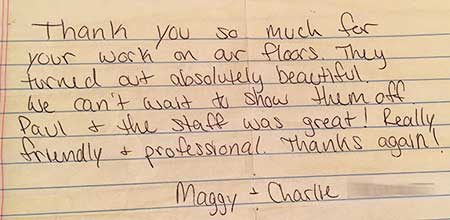 Thank you so much for
your work on our floors. They
turned out absolutely beautiful.
We can't wait to show them off.
Paul + the staff was great! Really
friendly + professional. Thanks again!
Maggy + Charlie